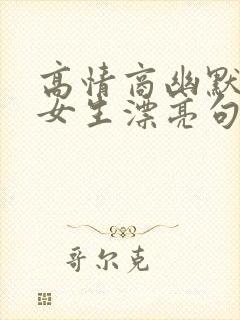 高情商幽默
女生漂亮句
哥尔克